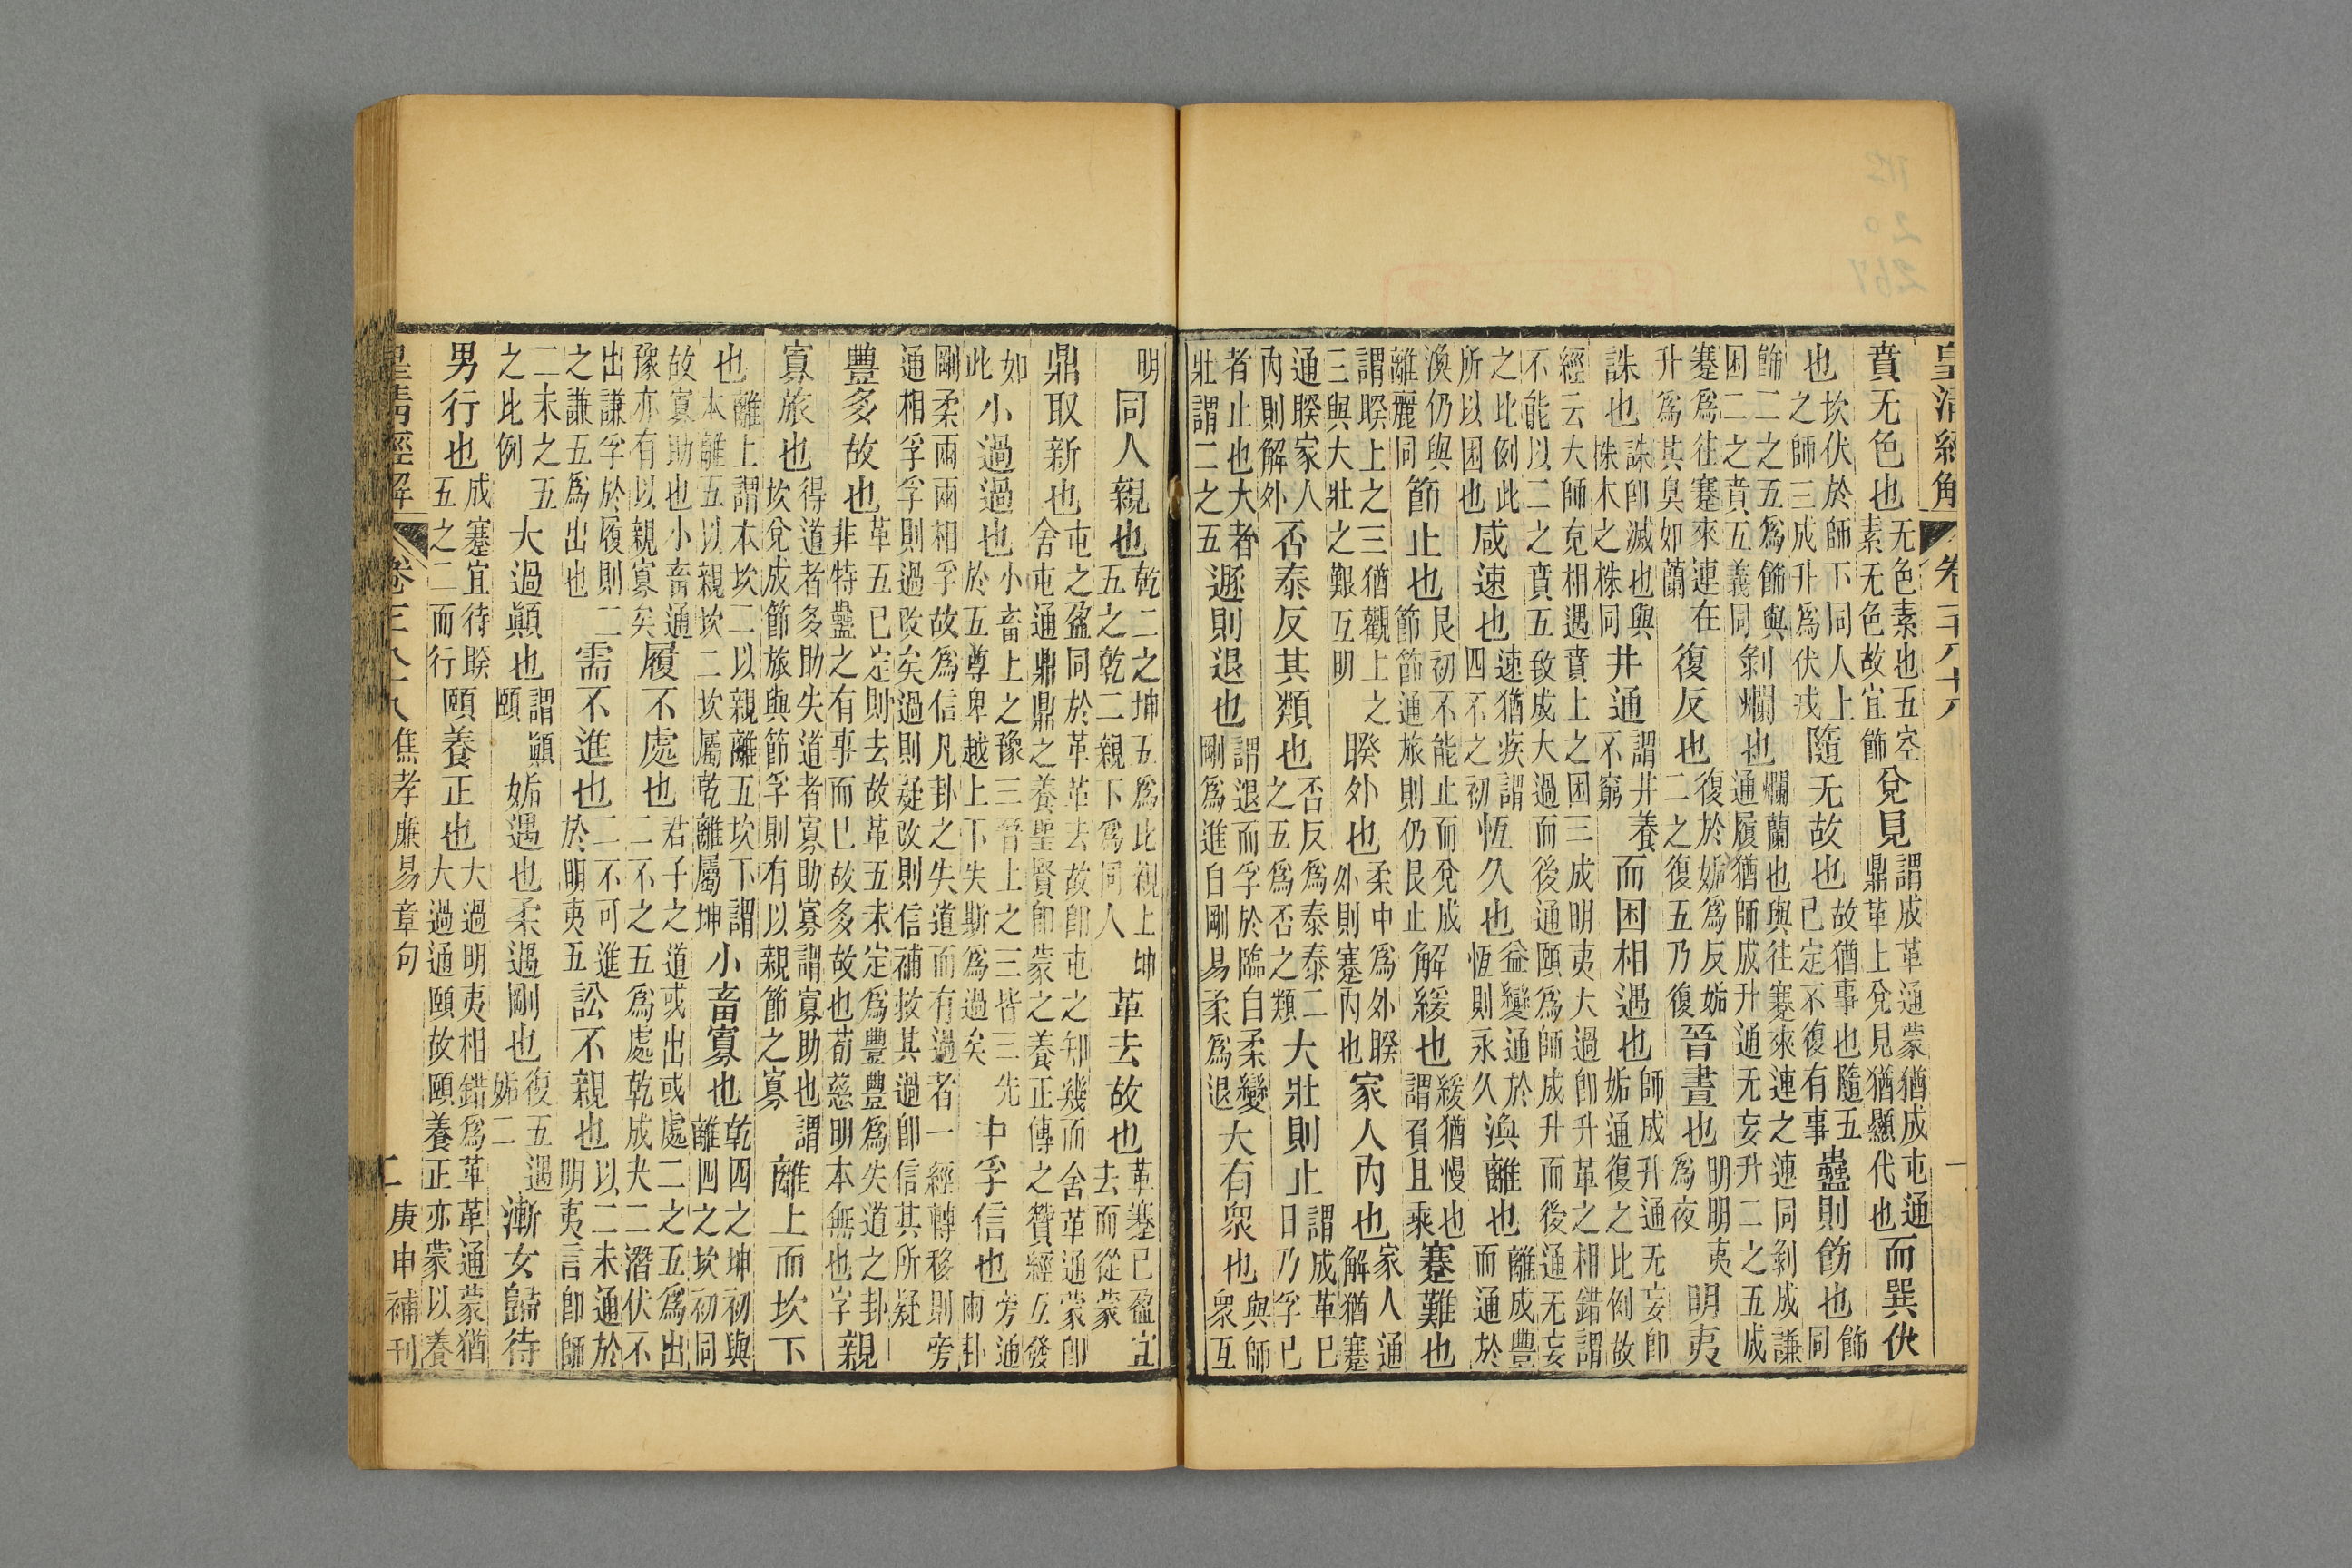 皇清經解 卷一千八十八
賁无色也无色素也五空素无色故宜飾兌見謂成革通蒙猶成屯通鼎革上兌見猶顯代也而巽伏
也坎伏於師下同人上之師三成升爲伏戎隨无故也故猶事也隨五已定不復有事蠱則飭也飾同
飾二之五爲飾與困二之賁五義同剝爛也爛蘭也與往蹇來連之連同剝成謙通履猶師成升通无妄升二之五成
蹇爲往蹇來連在升爲其臭如蘭復反也復於姤爲反姤二之復五乃復晉晝也明明夷爲夜明夷
誅也誅卽滅也與株木之株同井通謂井養不窮而困相遇也師成升通无妄卽姤通復之比例故
經云大師克相遇賁上之困三成明夷大過卽升革之相錯謂不能以二之賁五致成大過而後通頤爲師成升而後通无妄
之比例此所以困也咸速也速猶疾謂四不之初恆久也益變通於恆則永久渙離也離成豐而通於
渙仍與離麗同節止也艮初不能止而兌成節節通旅則仍艮止解緩也緩猶慢也謂負且乘蹇難也
謂睽上之三猶觀上之三與大壯之艱互明睽外也柔中爲外睽外則蹇內也家人內也家人通解猶蹇
通睽家人內則解外否泰反其類也否反爲泰泰二之五爲否之類大壯則止謂成革已日乃孚已
者止也大者壯謂二之五遯則退也謂退而孚於臨自柔變剛爲進自剛易柔爲退大有衆也與師衆互
明同人親也乾二之坤五爲比親上坤五之乾二親下爲同人革去故也革蹇已盈宜去而從蒙
鼎取新也屯之盈同於革革去故卽屯之知幾而舍革通蒙卽舍屯通鼎鼎之養聖賢卽蒙之養正傳之贊經互發
如此小過過也小畜上之豫三晉上之三皆三先於五尊卑越上下失斯爲過矣中孚信也旁通兩卦
剛柔兩兩相孚故爲信凡卦之失道而有過者一經轉移則旁通相孚孚則過改矣過則疑改則信補救其過卽信其所疑
豐多故也革五已定則去故革五未定爲豐豐爲失道之卦非特蠱之有事而已故多故也荀慈明本無也字親
寡旅也得道者多助失道者寡助寡謂寡助也謂坎兌成節旅與節孚則有以親節之寡離上而坎下
也離上謂本坎二以親離五坎下謂本離五以親坎二坎屬乾離屬坤小畜寡也乾四之坤初與離四之坎初同
故寡助也小畜通豫亦有以親寡矣履不處也君子之道或出或處二之五爲出二不之五爲處乾成夬二潛伏不
出謙孚於履則二之謙五爲出也需不進也二不可進於明夷五訟不親也以二未通於明夷言卽師
二未之五之比例大過顚也謂顚頤姤遇也柔遇剛也復五遇姤二漸女歸待
男行也成蹇宜待睽五之二而行頤養正也大過明夷相錯爲革革通蒙猶大過通頤故頤養正亦蒙以養
皇清經解 焦孝廉易章句 二 庚申補刊